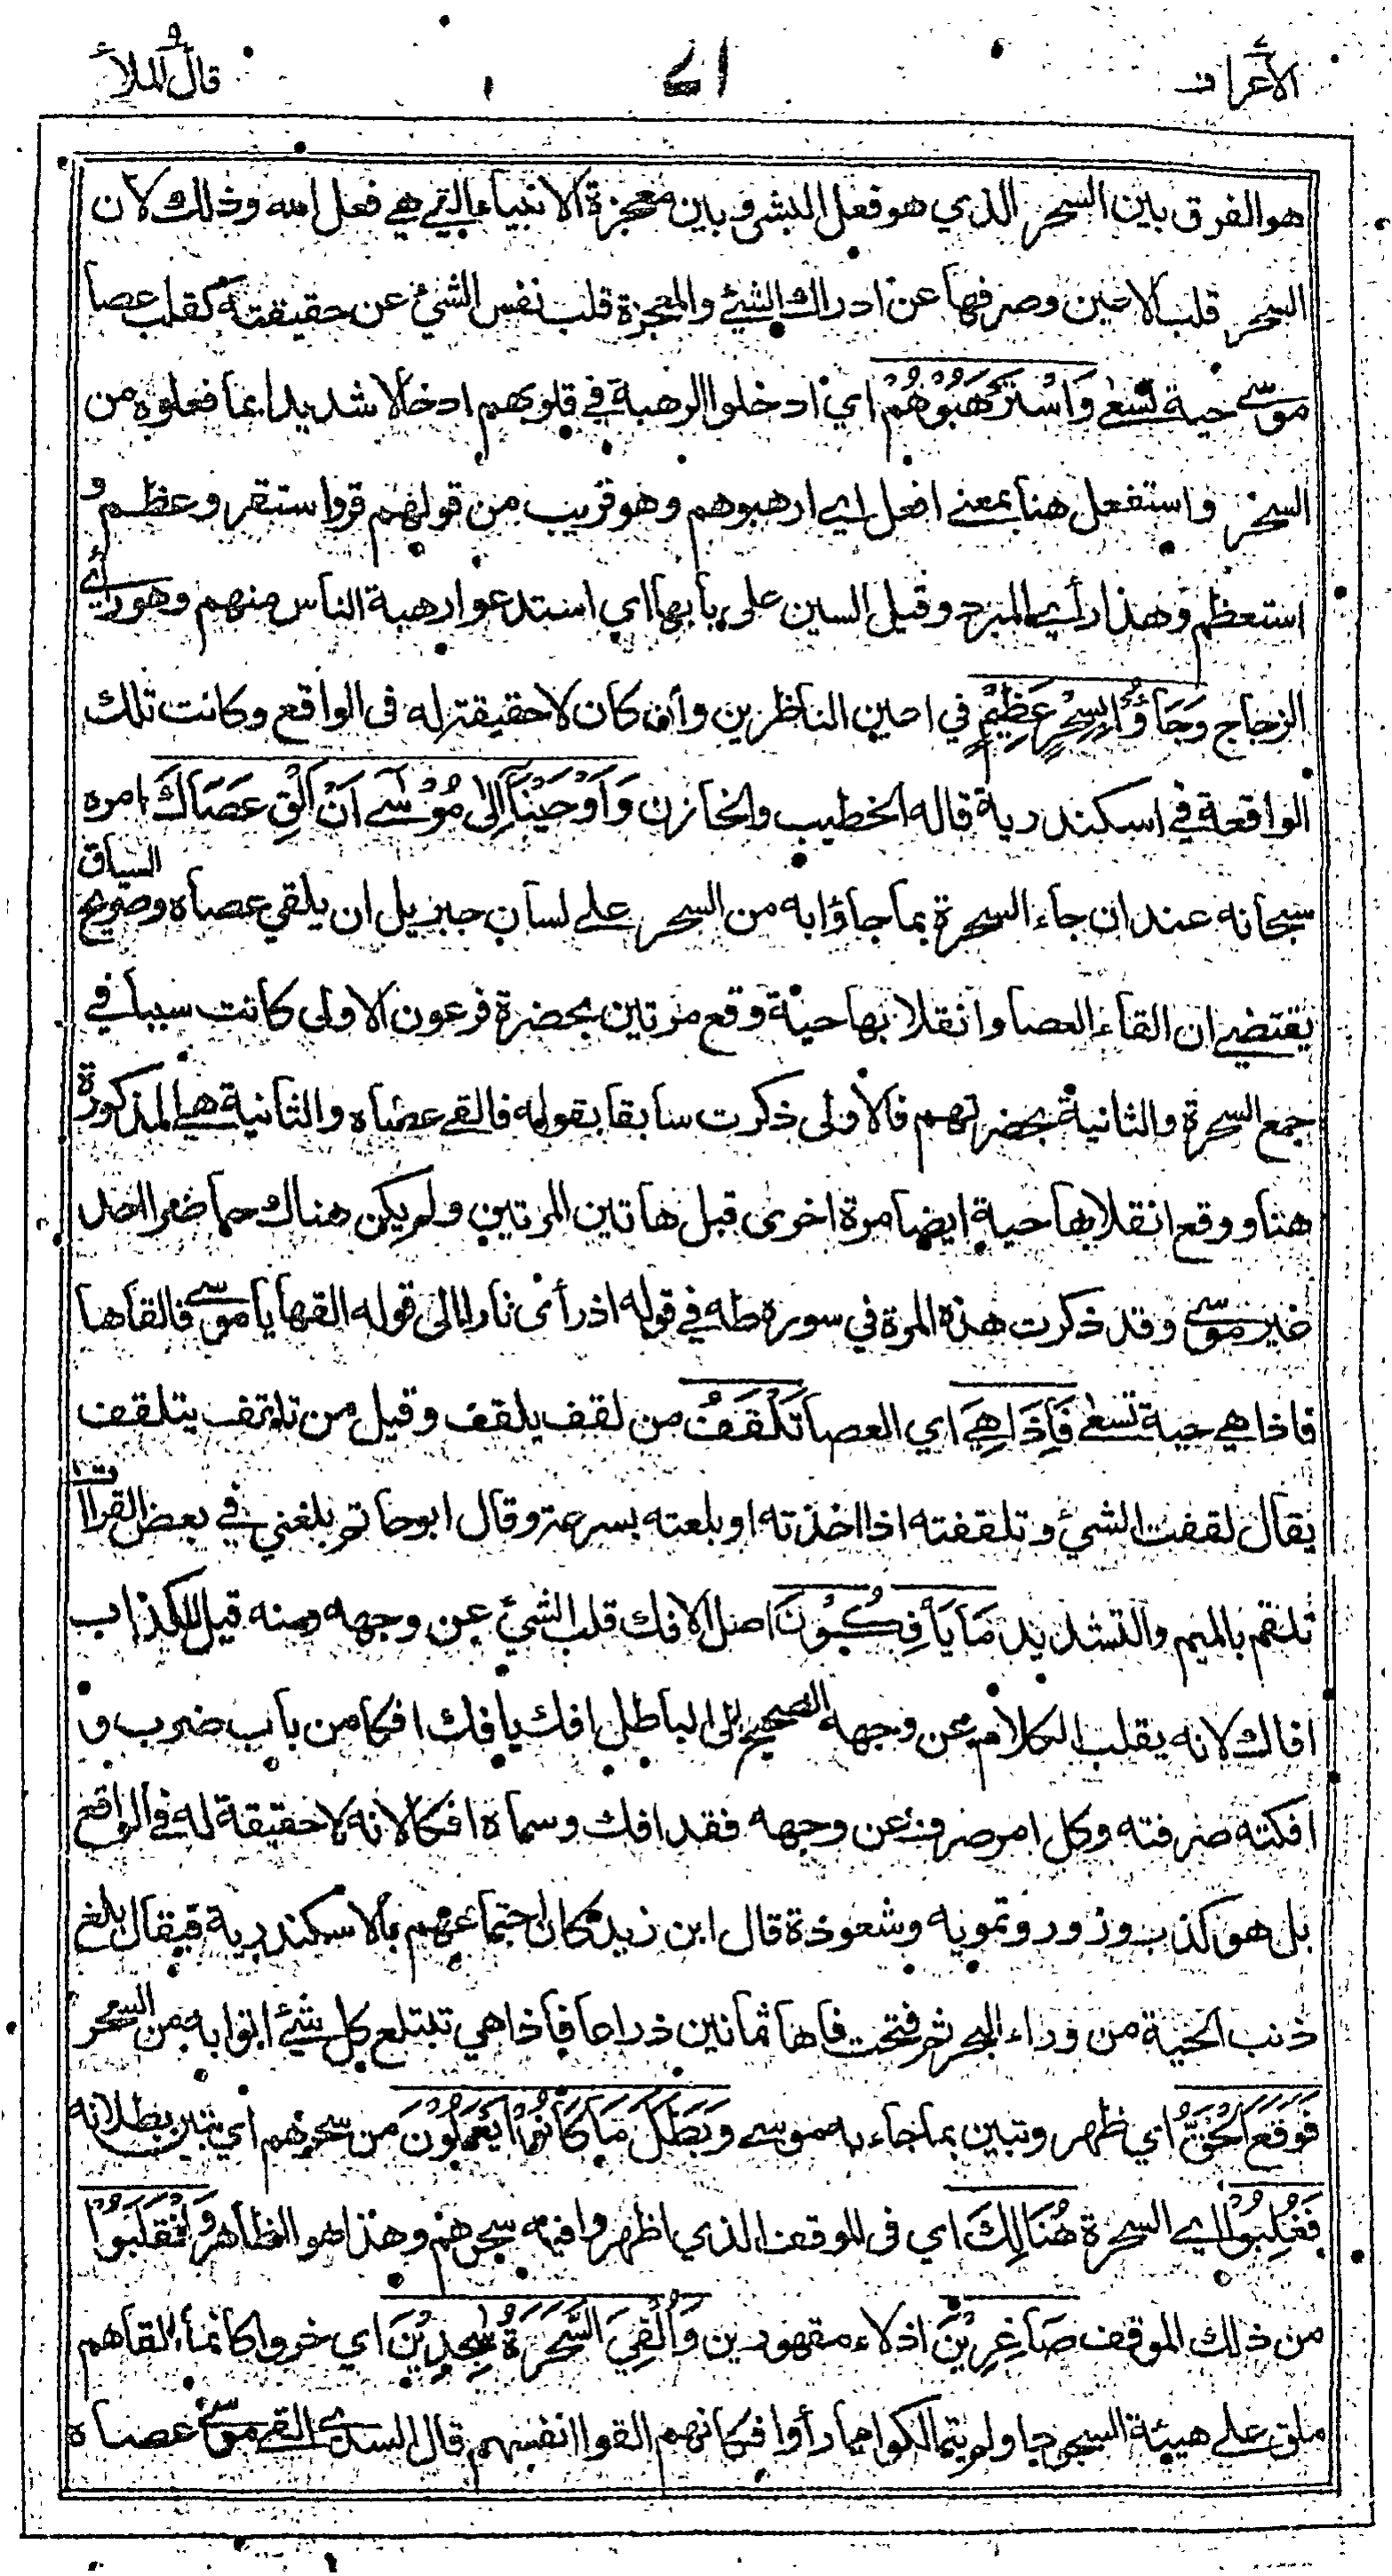 الأعراف ٨١ قال الملأ
هو الفرق بين السحر الذي هو فعل البشر وبين معجزة الانبياء التي هي فعل الله وذلك لان
السحر قلب الاعين وصرفها عن ادراك الشيئ والمعجزة قلب نفس الشيئ عن حقيقته كقلب عصا
موسى حية تسعى وَاسْتَرْهَبُوْهُمْ اي ادخلوا الرهبة في قلوبهم ادخالا شديدا بما فعلوه من
السحر واستفعل هنا بمعنى افعل اي ارهبوهم وهو قريب من قولهم قر واستقر وعظم و
استعظم وهذا رأي المبرد وقيل السين على بابها اي استدعوا رهبة الناس منهم وهو رأي
الزجاج وَجَاؤُا بِسِحْرٍ عَظِيْمٍ في اعين الناظرين وان كان لا حقيقة له في الواقع وكانت تلك
الواقعة في اسكندرية قاله الخطيب والخازن وَاَوْحَيْنَآ اِلٰى مُوْسٰٓى اَنْ اَلْقِ عَصَاكَ امره
سبحانه عند ان جاء السحرة بما جاؤا به من السحر على لسان جبريل ان يلقي عصاه وصريح السياق
يقتضي ان القاء العصا وانقلابها حية وقع مرتين بحضرة فرعون الاولى كانت سببا في
جمع السحرة والثانية بحضرتهم فالاولى ذكرت سابقا بقوله فالقى عصاه والثانية هي المذكورة
هنا ووقع انقلابها حية ايضا مرة اخرى قبل هاتين المرتين ولم يكن هناك حاضر احد
غير موسى وقد ذكرت هذه المرة في سورة طه في قوله اذ رأى نارا الى قوله القها يا موسى فالقاها
فاذا هي حية تسعى فَاِذَا هِيَ اي العصا تَلْقَفُ من لقف يلقف وقيل من تلقف يتلقف
يقال لقفت الشيئ وتلقفته اذا اخذته او بلعته بسرعة وقال ابو حاتم بلغني في بعض القراآت
تلقم بالميم والتشديد مَا يَأْفِكُوْنَ اصل الافك قلب الشيئ عن وجهه ومنه قيل للكذاب
افاك لانه يقلب الكلام عن وجهه الصحيح الى الباطل افك يأفك افكا من باب ضرب و
افكته صرفته وكل امر صرف عن وجهه فقد افك وسماه افكا لانه لا حقيقة له في الواقع
بل هو كذب وزور وتمويه وشعوذة قال ابن زيد كان اجتماعهم بالاسكندرية فيقال بلغ
ذنب الحية من وراء البحر ثم فتحت فاها ثمانين ذراعا فاذا هي تبتلع كل شيئ اتوا به من السحر
فَوَقَعَ الْحَقُّ اي ظهر وتبين بما جاء به موسى وَبَطَلَ مَا كَانُوْا يَعْمَلُوْنَ من سحرهم اي تبين بطلانه
فَغُلِبُوْا اي السحرة هُنَالِكَ اي في الموقف الذي اظهروا فيه سحرهم وهذا هو الظاهر وَانْقَلَبُوْا
من ذلك الموقف صَاغِرِيْنَ اذلاء مقهورين وَاُلْقِيَ السَّحَرَةُ سٰجِدِيْنَ اي خروا كانما القاهم
ملق على هيئة السجود او لم يتمالكوا مما رأوا فكانهم القوا انفسهم قال السدي القى موسى عصاه